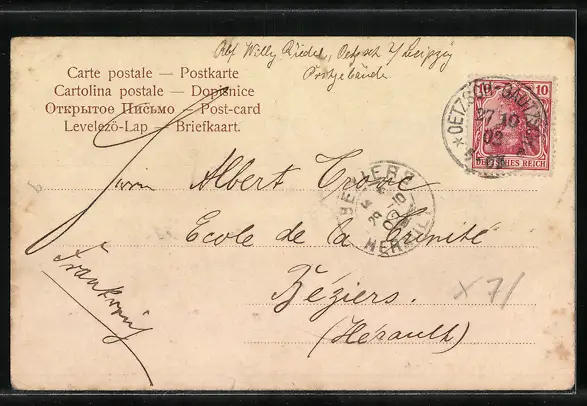 Abs. Willy Riedel, Oetzsch b/Leipzig
Postgebäude
Carte postale — Postkarte
Cartolina postale — Dopisnice
Открытое Письмо — Post-card
Levelező-Lap — Briefkaart.
10 10
DEUTSCHES REICH
* OETZSCH-GAUTZSCH *
27 10
02
BEZIERS
29 -10
02
HERAULT
Herrn Albert Crone
Ecole de la Trinité
Béziers.
(Hérault)
Frankreich
x 7/